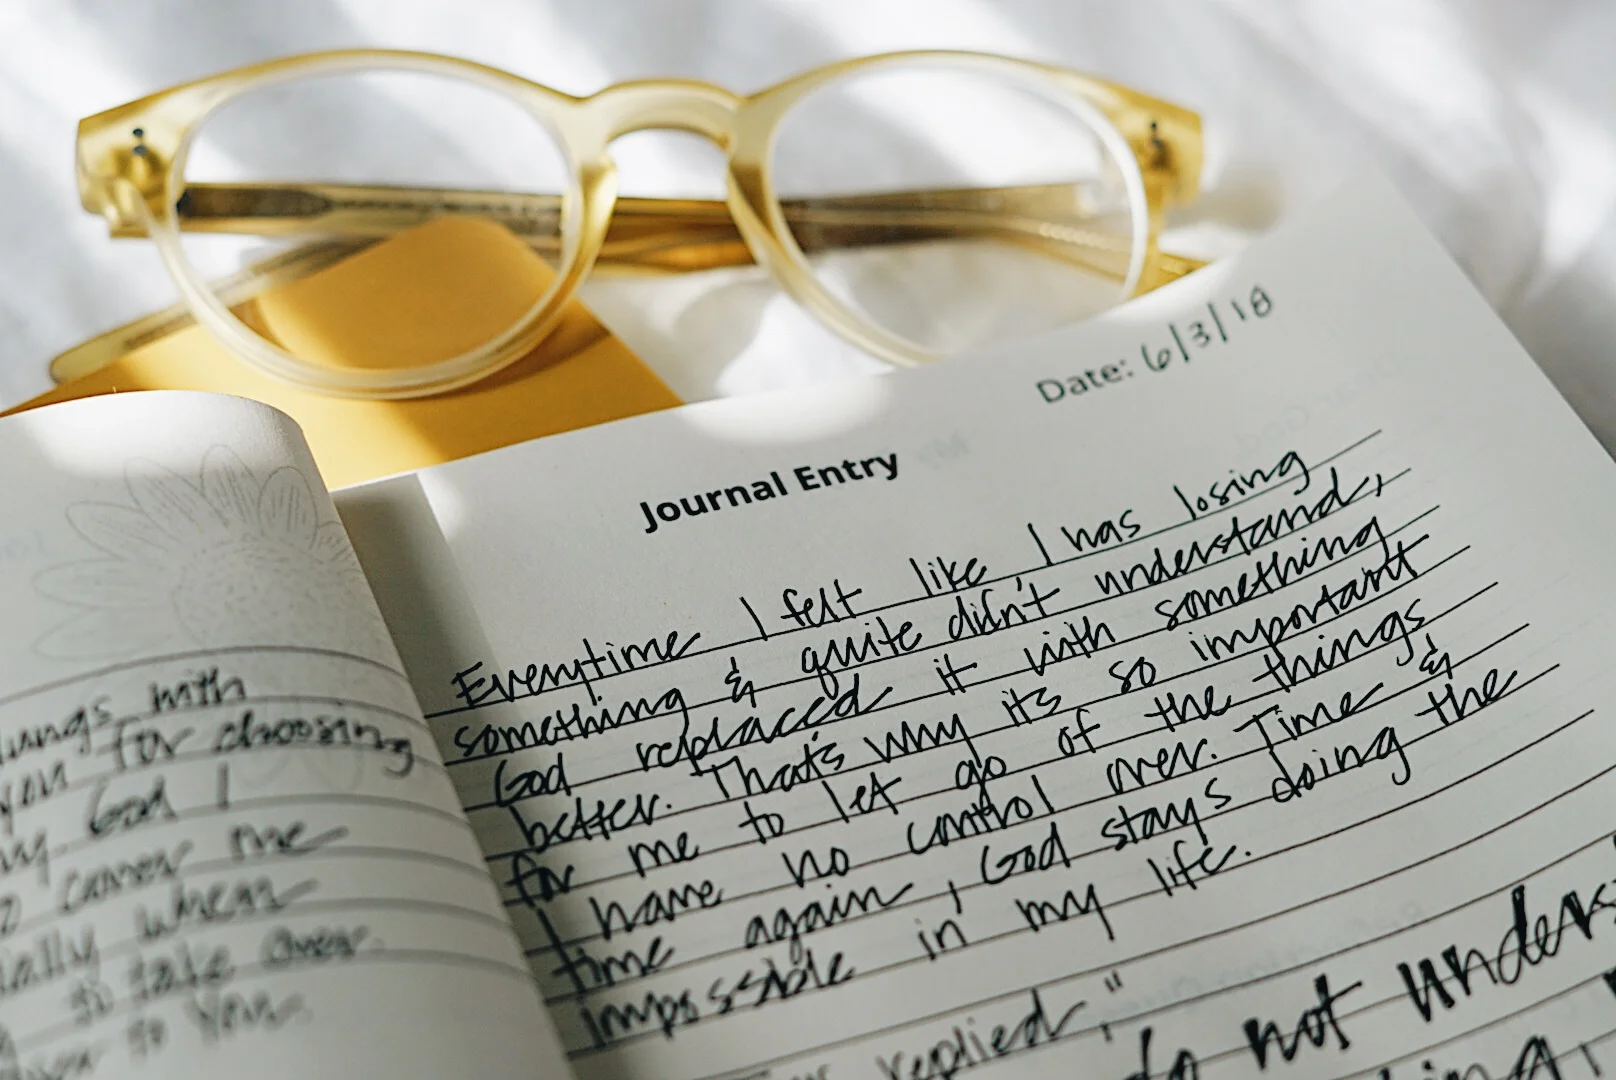 Date: 6/3/18
Journal Entry
Everytime I felt like, I was losing
something & quite didn't understand,
God replaced it with something
better. That's why its so important
for me to let go of the things
I have no control over. Time &
time again, God stays doing the
impossible in my life.
replied,"
do not unders
with
for choosing
God I
me
when
to take over.
to You.